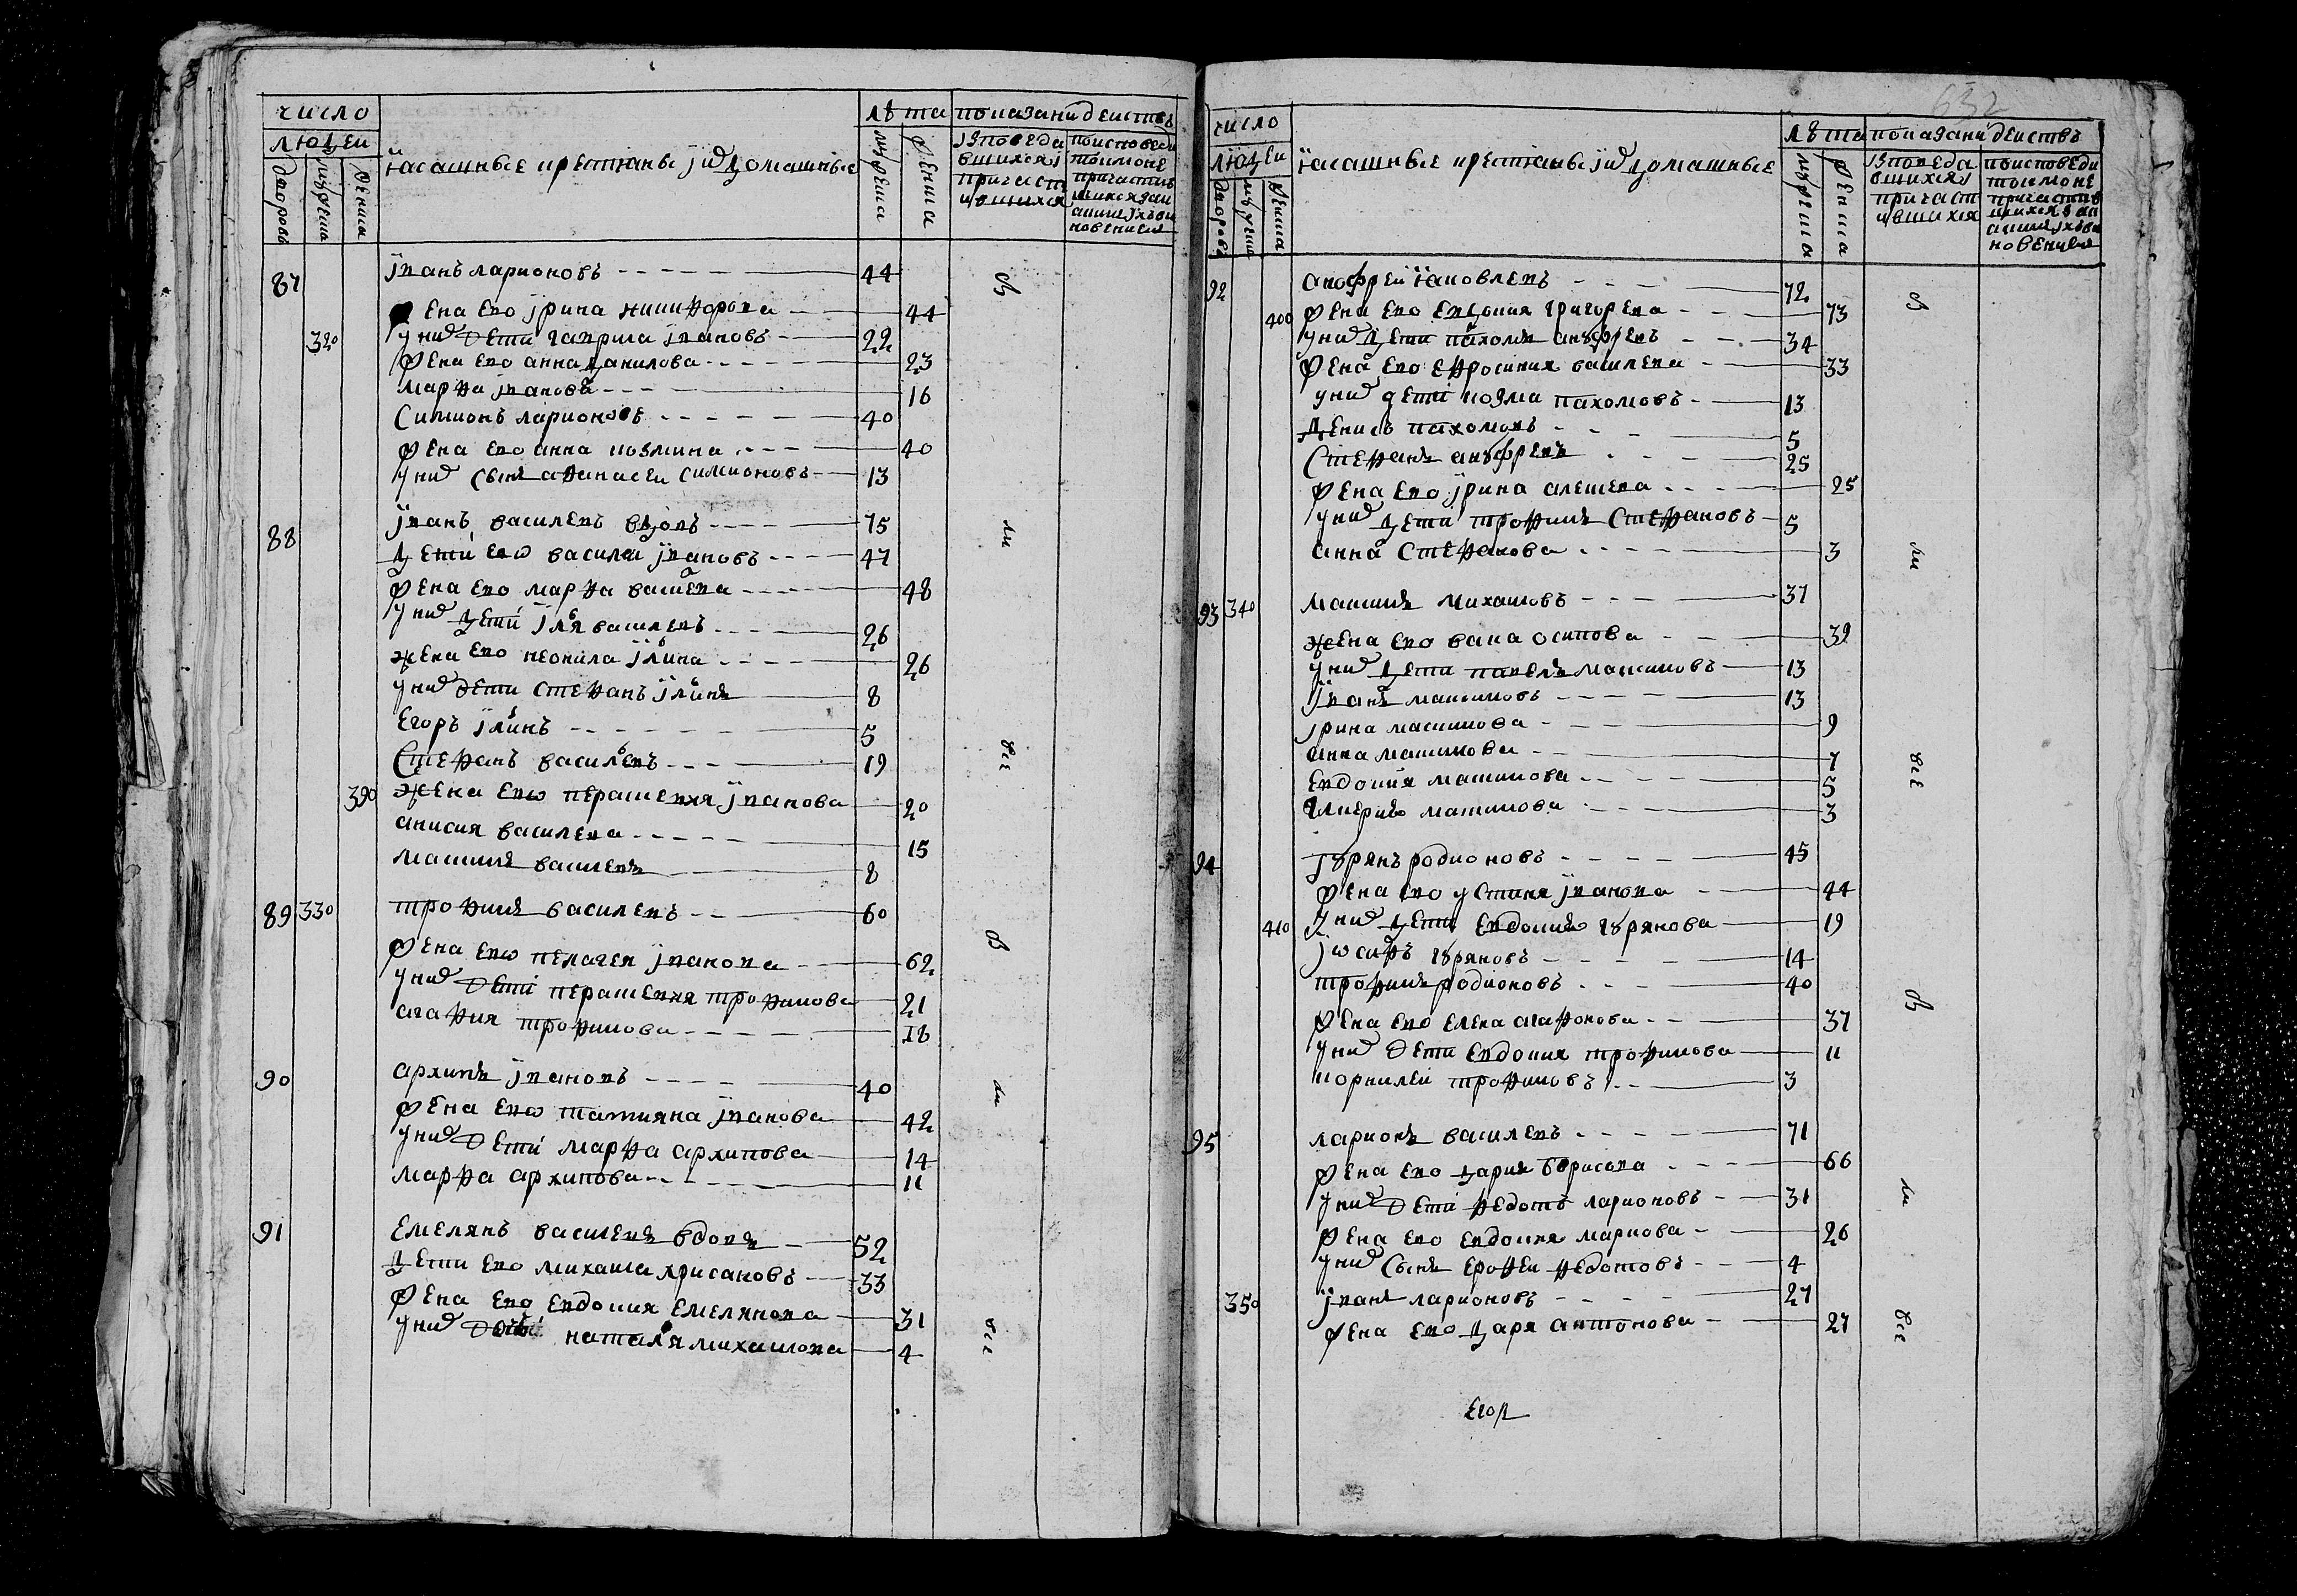 число
людей
дворовъ
мужеска
женска
Ясашные крестяне и их домашные
лѣта
мужеска
женска
показани действъ
исповеда
вшихся и
причаст
ившихся
87
Іванъ ларионовъ 44
жена ево Ірина никифорова 44
320
у них дети гаврила Івановъ 22
жена ево анна данилова 23
марфа Іванова 16
Симионъ ларионовъ 40
жена ево анна козмина 40
у них сынъ афанасеи симионовъ 13
88
Іванъ василевъ вдовъ 75
дети ево василеи Івановъ 47
жена ево марфа василева 48
у них дети Іля василевъ 26
жена ево неонила Ілина 26
у них дети стефанъ Ілинъ 8
Егоръ Ілинъ 5
Стефанъ василевъ 19
390
жена ево парасковия Іванова 20
анисия василева 15
максимъ василевъ 8
89 330
трофимъ василевъ 60
жена ево пелагея Іванова 62
у них дети трофимова 21
агафия трофимова 18
90
архипъ Івановъ 40
жена ево татияна Іванова 42
у них дети марфа архипова 14
марфа архипова 11
91
Емелянъ василевъ вдовъ 52
дети ево михаила хрисановъ 33
жена ево евдокия емелянова 31
у них наталя михаилова 4
всѣ
число
людей
дворовъ
мужеска
женска
Ясашные крестяне и их домашные
лѣта
мужеска
женска
показани действъ
исповеда
вшихся и
причаст
ившихся
632
92
анофреи Яковлевъ 72
400
жена ево евдокия григорева 73
у них дети пахомъ ануфревъ 34
жена ево ефросиния василева 33
у них дети козма пахомовъ 13
денисъ пахомовъ 5
Стефанъ ануфревъ 25
жена ево Ірина алексеева 25
у них дети трофимъ Стефановъ 5
анна Стефанова 3
93 340
максимъ михаиловъ 37
жена ево осипова 39
у них дети павелъ максимовъ 13
Іванъ максимовъ 13
Ірина максимова 9
анна максимова 7
Евдокия максимова 5
максимова 3
94
гурянъ родионовъ 45
жена ево устиня Іванова 44
410
у них дети евдокия гурянова 19
Іосифъ гуряновъ 14
трофимъ родионовъ 40
жена ево елена агафонова 37
у них дети евдокия трофимова 11
корнилеи трофимовъ 3
95
ларионъ василевъ 71
жена ево дария борисова 66
у них дети федотъ ларионовъ 31
жена ево евдокия маркова 26
у них сынъ ерофеи федотовъ 4
350
Іванъ ларионовъ 27
жена ево даря антонова 27
всѣ
Егор